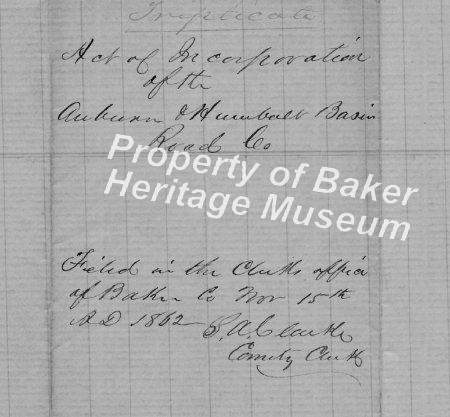 Triplicate
Act of Incorporation
of the
Auburn & Humbolt Basin
Road Co
Property of Baker
Heritage Museum
Filed in the Clerks office
of Baker Co Nov 15th
A D 1862
S. A. Clarke
County Clerk